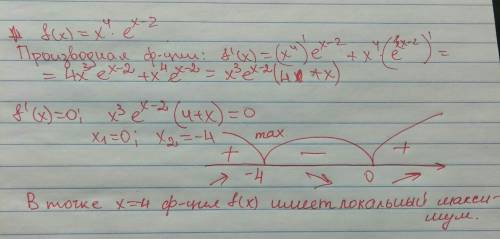 f(x) = x⁴ · e^(x-2)
Производная ф-ции: f'(x) = (x⁴)' e^(x-2) + x⁴ · (e^(x-2))' =
= 4x³ e^(x-2) + x⁴ e^(x-2) = x³ e^(x-2) (4 + x)
f'(x)=0; x³ e^(x-2) (4+x) = 0
x₁=0; x₂=-4 max
+ − +
-4 0
В точке x=-4 ф-ция f(x) имеет локальный макси-
мум.